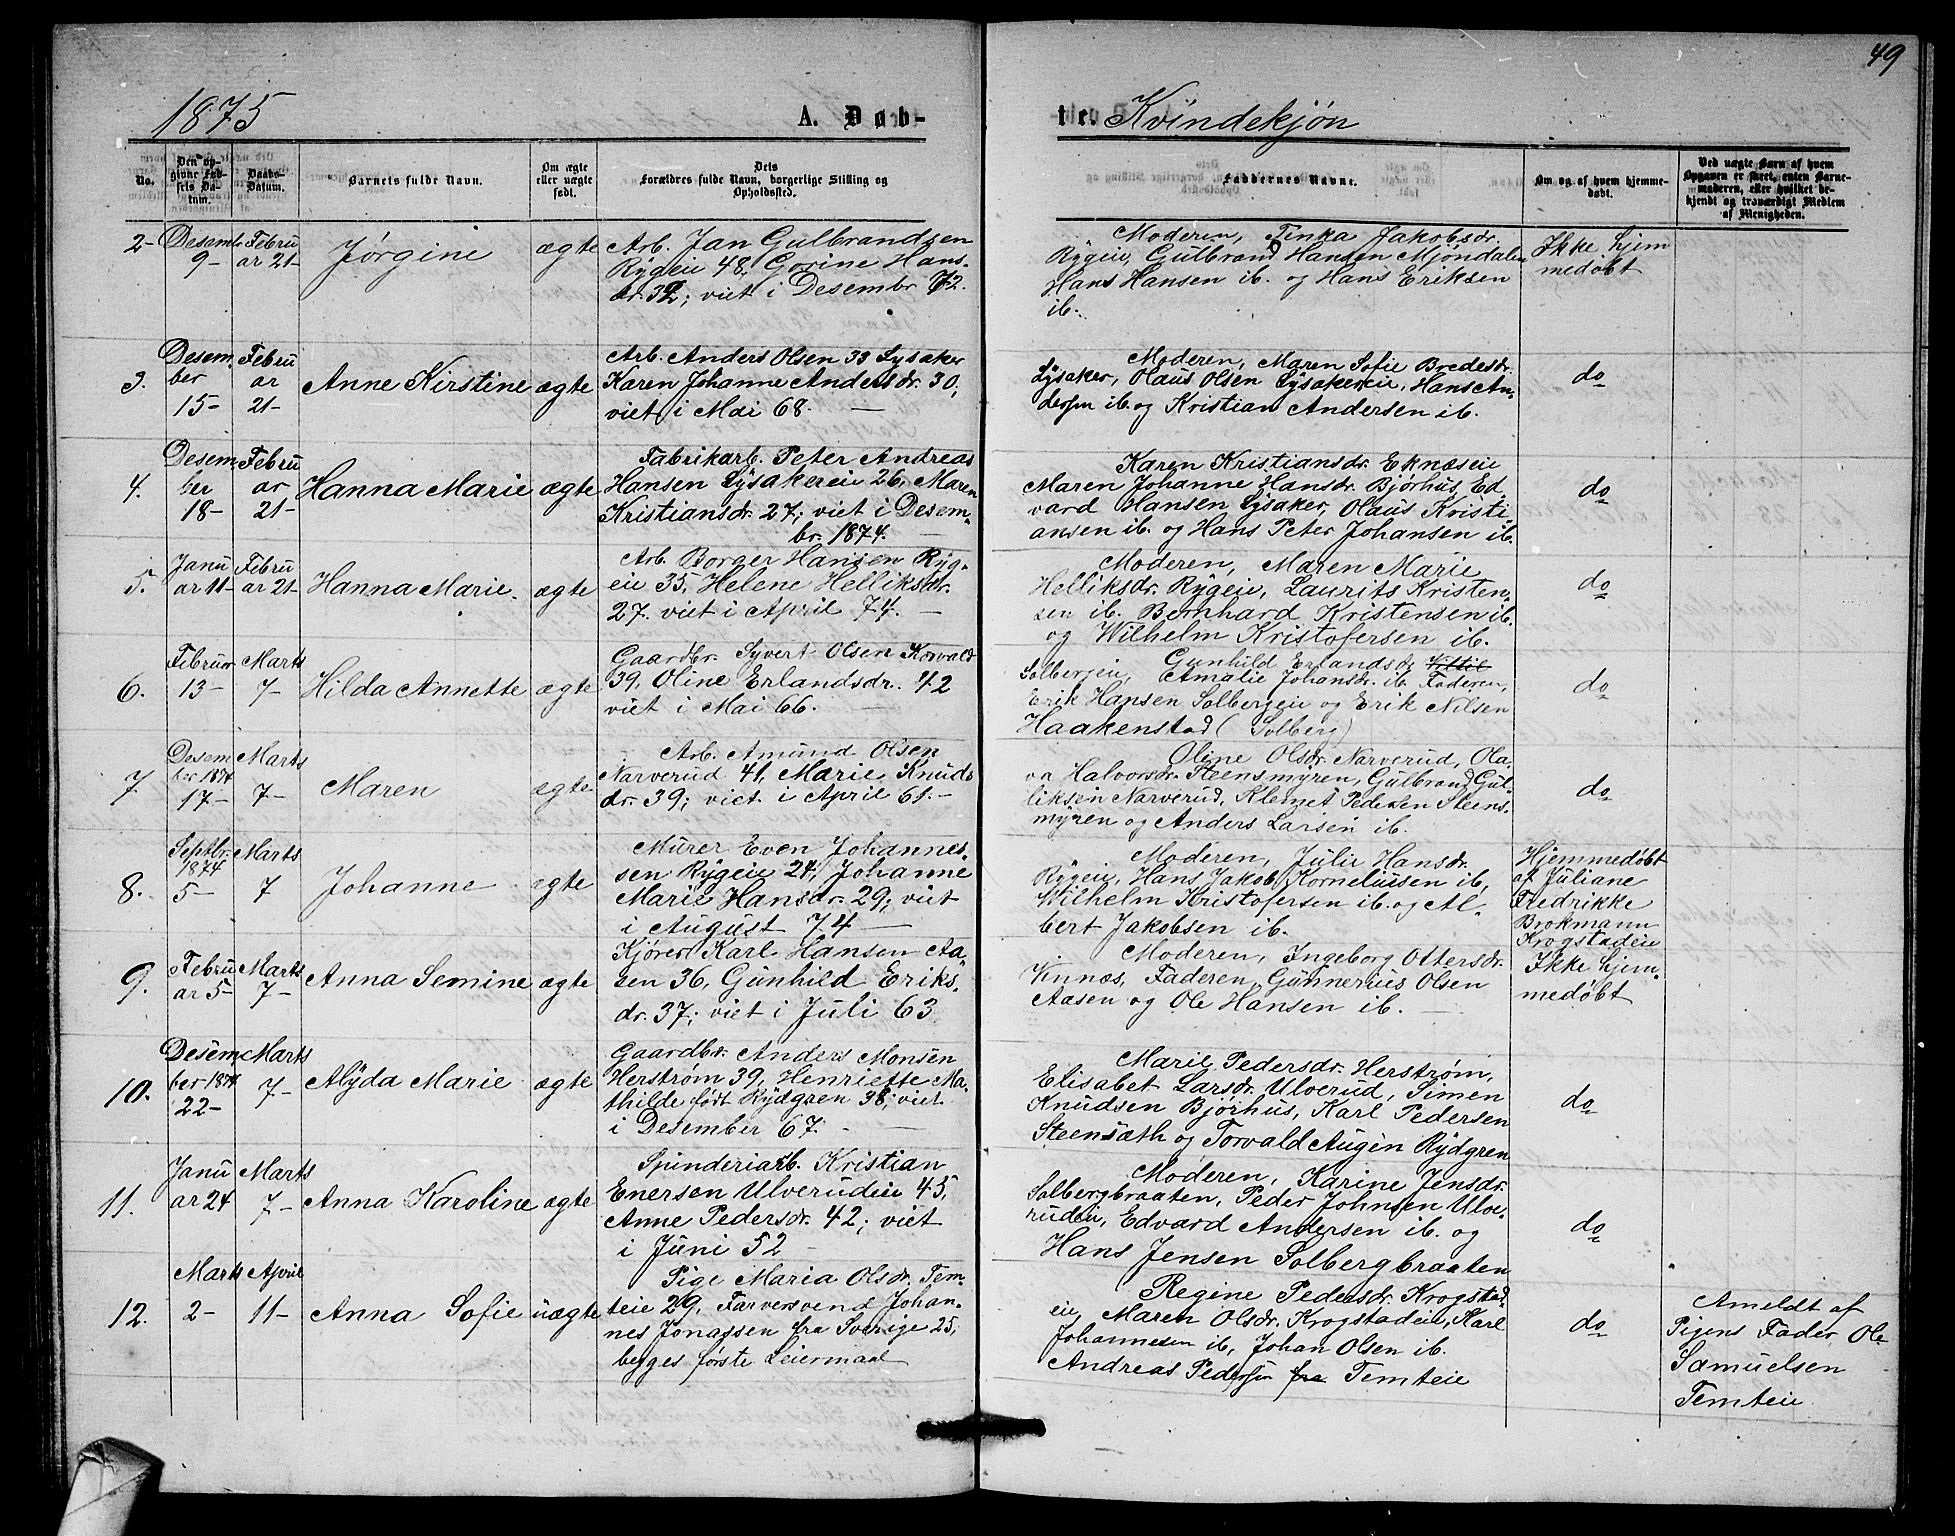 49
1875
A. Døb-
te. Kvindekjøn
No.
Den op-
givne Fød-
sels Da-
tum.
Daabs-
Datum.
Barnets fulde Navn.
Om ægte
eller uægte
født.
Dets
Forældres fulde Navn, borgerlige Stilling og
Opholdssted.
Faddernes Navne.
Om og af hvem hjemme-
døbt.
Ved uægte Barn af hvem
Opgaven er skeet, enten Barne-
moderen, eller hvilket be-
kjendt og troværdigt Medlem
af Menigheden.
2-
Desembr
9-
Febru
ar 21-
Jørgine
ægte
Arb. Jan Gulbrandsen
Rygeie 48, Gorine Hans-
dr. 32; viet i Desembr 72.
Moderen, Tinka Jakobsdr.
Rygeie, Gulbrand Hansen Mjøndalen
Hans Hansen ib. og Hans Eriksen
ib.
Ikke hjem
medøbt
3.
Desem-
ber
15-
Febru
ar
21-
Anne Kirstine
ægte
Arb. Anders Olsen 33 Lysaker
Karen Johanne Andersdr. 30,
viet i Mai 68.
Moderen, Maren Sofie Bredesdr.
Lysaker, Olaus Olsen Lysakereie, Hans An-
dersen ib. og Kristian Andersen ib.
do
4.
Desem
ber
18-
Febru
ar
21-
Hanna Marie
ægte
Fabrikarb. Peter Andreas
Hansen Lysakereie 26, Maren
Kristiansdr. 27; viet i Desem-
br. 1874.
Karen Kristiansdr. Eknæseie
Maren Johanne Hansdr. Bjørhus, Ed-
vard Hansen Lysaker, Olaus Kristi
ansen ib. og Hans Peter Johansen ib.
do
5.
Janu
ar 11-
Febru
ar 21-
Hanna Marie.
ægte
Arb. Borger Hansen Ryg-
eie 35, Helene Helliksdr.
27. viet i April 74.
Moderen, Maren Marie
Helliksdr. Rygeie, Laurits Kristen-
sen ib. Bernhard Kristensen ib.
og Wilhelm Kristofersen ib.
do
6.
Februar
13-
Marts
7-
Hilda Annette
ægte
Gaardbr. Syvert Olsen Korvald
39, Oline Erlandsdr. 42
viet i Mai 66.
Gunhild Erlandsdr.
Solbergeie, Amalie Johansdr. ib. Faderen,
Erik Hansen Solbergeie og Erik Nilsen
Haakenstad (Solberg)
do
7.
Desem
ber 1874
17-
Marts
7-
Maren
ægte
Arb. Amund Olsen
Narverud 41, Marie Knuds
dr. 39; viet i April 61.
Oline Olsdr. Narverud, Ola-
va Halvorsdr. Steensmyren, Gulbrand Gul-
liksen Narverud, Klemet Pedersen Steens-
myren og Anders Larsen ib.
do
8.
Septbr.
1874
5-
Marts
7
Johanne
ægte
Murer Even Johannes-
sen Rygeie 24, Johanne
Marie Hansdr. 29; viet
i August 74
Moderen, Julie Hansdr.
Rygeie, Hans Jakob Korneliusen ib,
Wilhelm Kristofersen ib. og Al-
bert Jakobsen ib.
Hjemmedøbt
af Juliane
Fredrikke
Brokmann
Krogstadeie
9.
Febru
ar 5-
Marts
7-
Anna Semine
ægte
Kjører Karl Hansen Aa-
sen 36, Gunhild Eriks-
dr. 37; viet i Juli 63
Moderen, Ingeborg Ottersdr.
Vinnæs, Faderen, Gunnerius Olsen
Aasen og Ole Hansen ib.
Ikke hjem-
medøbt
10.
Desem
ber 1874
22-
Marts
7-
Alyda Marie
ægte
Gaardbr. Anders Monsen
Herstrøm 39, Henriette Ma-
thilde født Rydgren 38; viet
i Desember 67.
Marie Pedersdr. Herstrøm,
Elisabet Larsdr. Ulverud, Simen
Knudsen Bjørhus, Karl Pedersen
Steensæth og Torvald Augen Rydgren
do
11.
Janu
ar 24
Marts
7-
Anna Karoline
ægte
Spinderiarb. Kristian
Enersen Ulverudeie 45,
Anne Pedersdr. 42; viet
i Juni 52
Moderen, Karine Jensdr.
Solbergbraaten, Peder Johnsen Ulve-
rudeie, Edvard Andersen ib. og
Hans Jensen Solbergbraaten
do
12.
Marts
2-
April
11-
Anna Sofie
uægte
Pige Maria Olsdr. Tem-
teie 29, Farversvend Johan-
nes Jonassen fra Sverige 25,
begges første Leiermaal
Regine Pedersdr. Krogstad-
eie, Maren Olsdr. Krogstadeie, Karl
Johannesen ib, Johan Olsen ib.
Andreas Pedersen fra Temteie
do
Ameldt af
Pigens Fader Ole
Samuelsen
Temteie